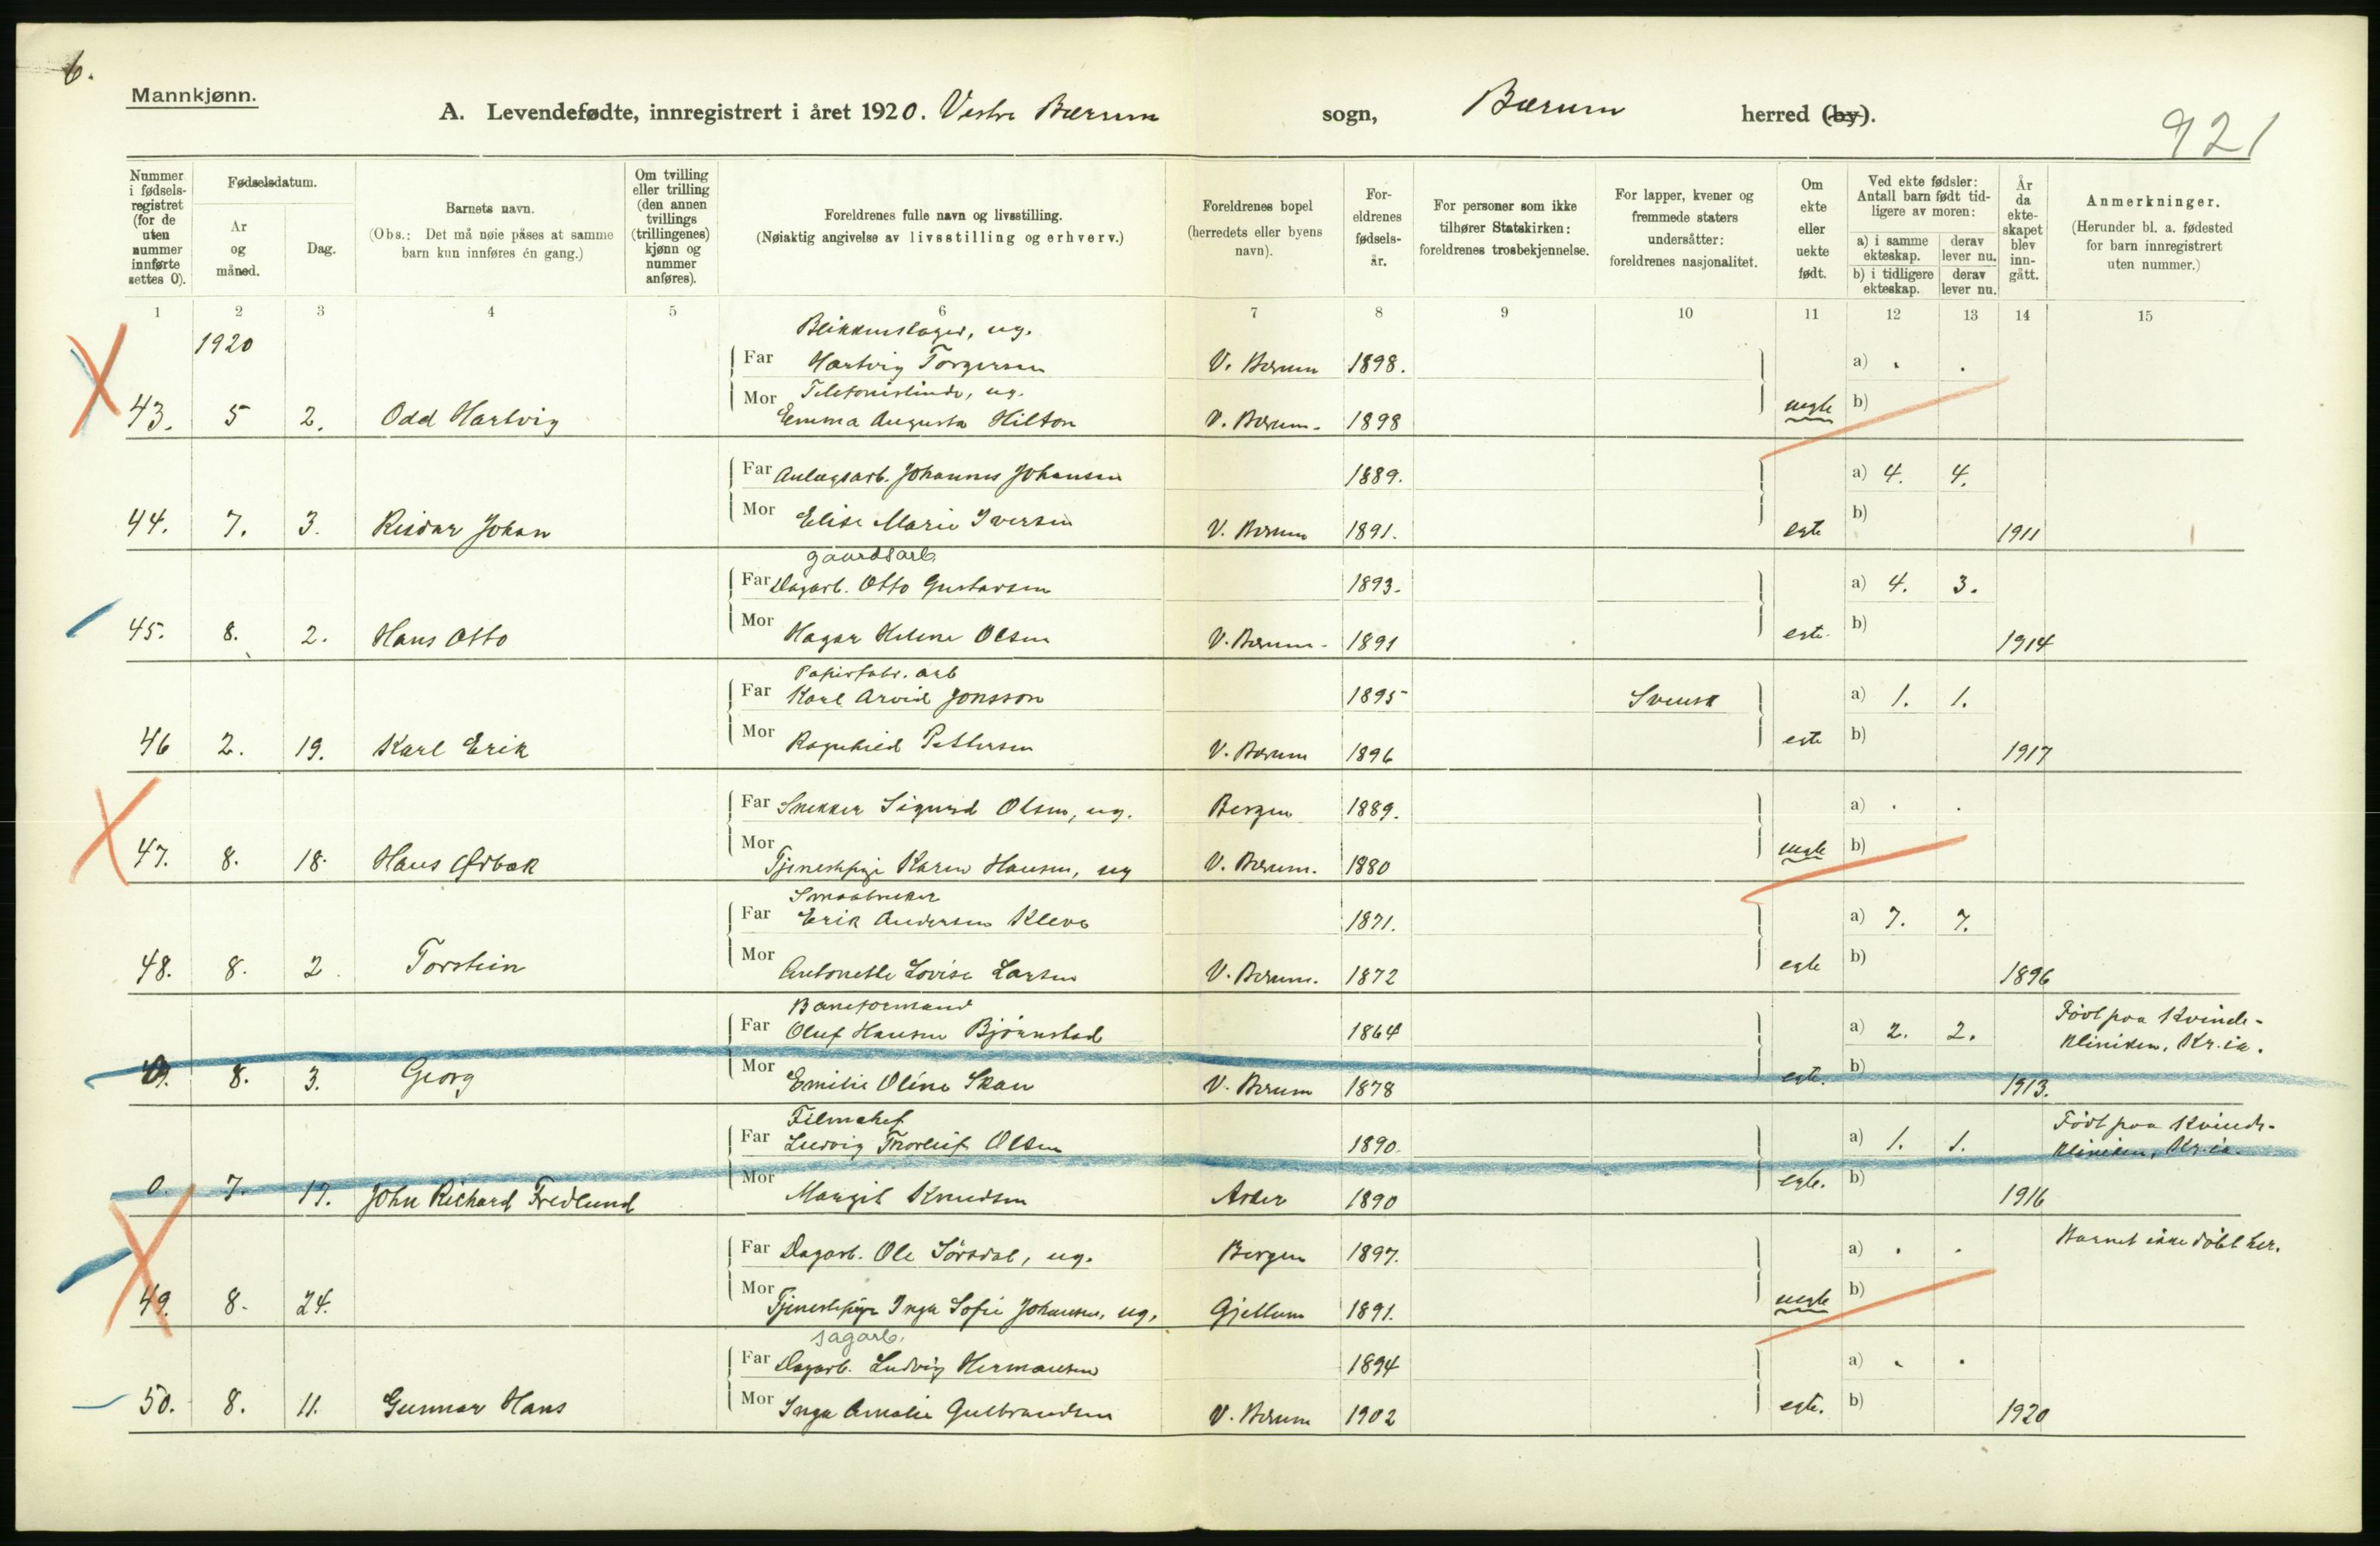 6.
Mannkjønn.
A. Levendefødte, innregistrert i året 1920. Vestre Bærum sogn, Bærum herred (by).
921
Nummer i fødsels-registret (for de uten nummer innførte settes 0).
Fødselsdatum.
År og måned.
Dag.
Barnets navn.
(Obs.: Det må nøie påses at samme barn kun innføres én gang.)
Om tvilling eller trilling (den annen tvillings (trillingenes) kjønn og nummer anføres).
Foreldrenes fulle navn og livsstilling.
(Nøiaktig angivelse av livsstilling og erhverv.)
Foreldrenes bopel (herredets eller byens navn).
For-eldrenes fødsels-år.
For personer som ikke tilhører Statskirken: foreldrenes trosbekjennelse.
For lapper, kvener og fremmede staters undersåtter: foreldrenes nasjonalitet.
Om ekte eller uekte født.
Ved ekte fødsler: Antall barn født tid-ligere av moren:
a) i samme ekteskap. derav lever nu.
b) i tidligere ekteskap. derav lever nu.
År da ekte-skapet blev inn-gått.
Anmerkninger.
(Herunder bl. a. fødested for barn innregistrert uten nummer.)
1 2 3 4 5 6 7 8 9 10 11 12 13 14 15
1920
Blikkenslager, ug.
Far Hartvig Torgersen V. Bærum 1898. a) . .
Mor Telefonistinde, ug.
43. 5 2. Odd Hartvig Emma Augusta Hilton V. Bærum. 1898 uegte b)
Far Anlægsarb. Johannes Johansen 1889. a) 4. 4.
44. 7. 3. Reidar Johan Mor Elise Marie Iversen V. Bærum 1891. egte b) 1911
gaardsarb.
Far Dagarb. Otto Gustavsen 1893. a) 4. 3.
45. 8. 2. Hans Otto Mor Hagar Helene Olsen V. Bærum. 1891 egte. b) 1914
Papirfabr. arb
Far Karl Arvid Jonsson 1895 Svensk a) 1. 1.
46 2. 19. Karl Erik Mor Ragnhild Pettersen V. Bærum 1896 egte b) 1917
Far Snekker Sigurd Olsen, ug. Bergen 1889. a) . .
47. 8. 18. Hans Ørbæk Mor Tjenestepige Karen Hansen, ug V. Bærum. 1880 uegte b)
Smaabruker
Far Erik Andersen Kleve 1871. a) 7. 7.
48. 8. 2. Torstein Mor Antonette Lovise Larsen V. Bærum. 1872 egte b) 1896
Baneformand Født paa Kvinde-
Far Oluf Hansen Bjørnstad 1864 a) 2. 2. kliniken, Kr.ia.
8. 3. Georg Mor Emilie Oline Skau V. Bærum 1878 egte. b) 1913.
Filmchef Født paa Kvinde-
Far Ludvig Thorleif Olsen 1890. a) 1. 1. kliniken, Kr.ia.
0. 7. 17. John Richard Fredlund Mor Margit Knudsen Asker 1890 egte. b) 1916
Far Dagarb. Ole Sørsdal, ug. Bergen 1897. a) . . Barnet ikke døbt her.
49. 8. 24. Mor Tjenestepige Inga Sofie Johansen, ug. Gjellum 1891. uegte b)
sagarb.
Far Dagarb. Ludvig Hermansen 1894 a) . .
50. 8. 11. Gunnar Hans Mor Inga Amalie Gulbrandsen V. Bærum 1902 egte. b) 1920